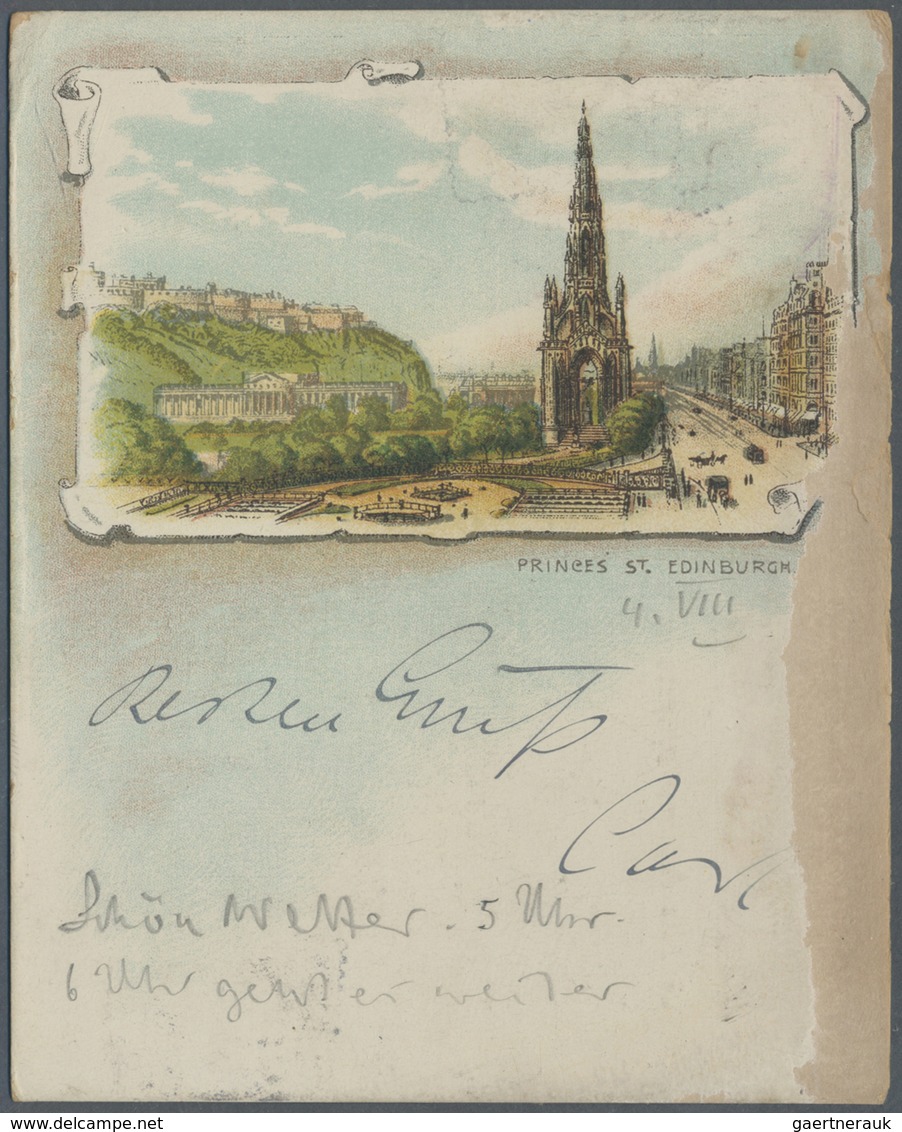 PRINCES ST. EDINBURGH.
4. VIII
Besten Gruß
Carl
Schön Wetter. 5 Uhr.
6 Uhr geht es weiter
delcampe.net
gaertnerauk